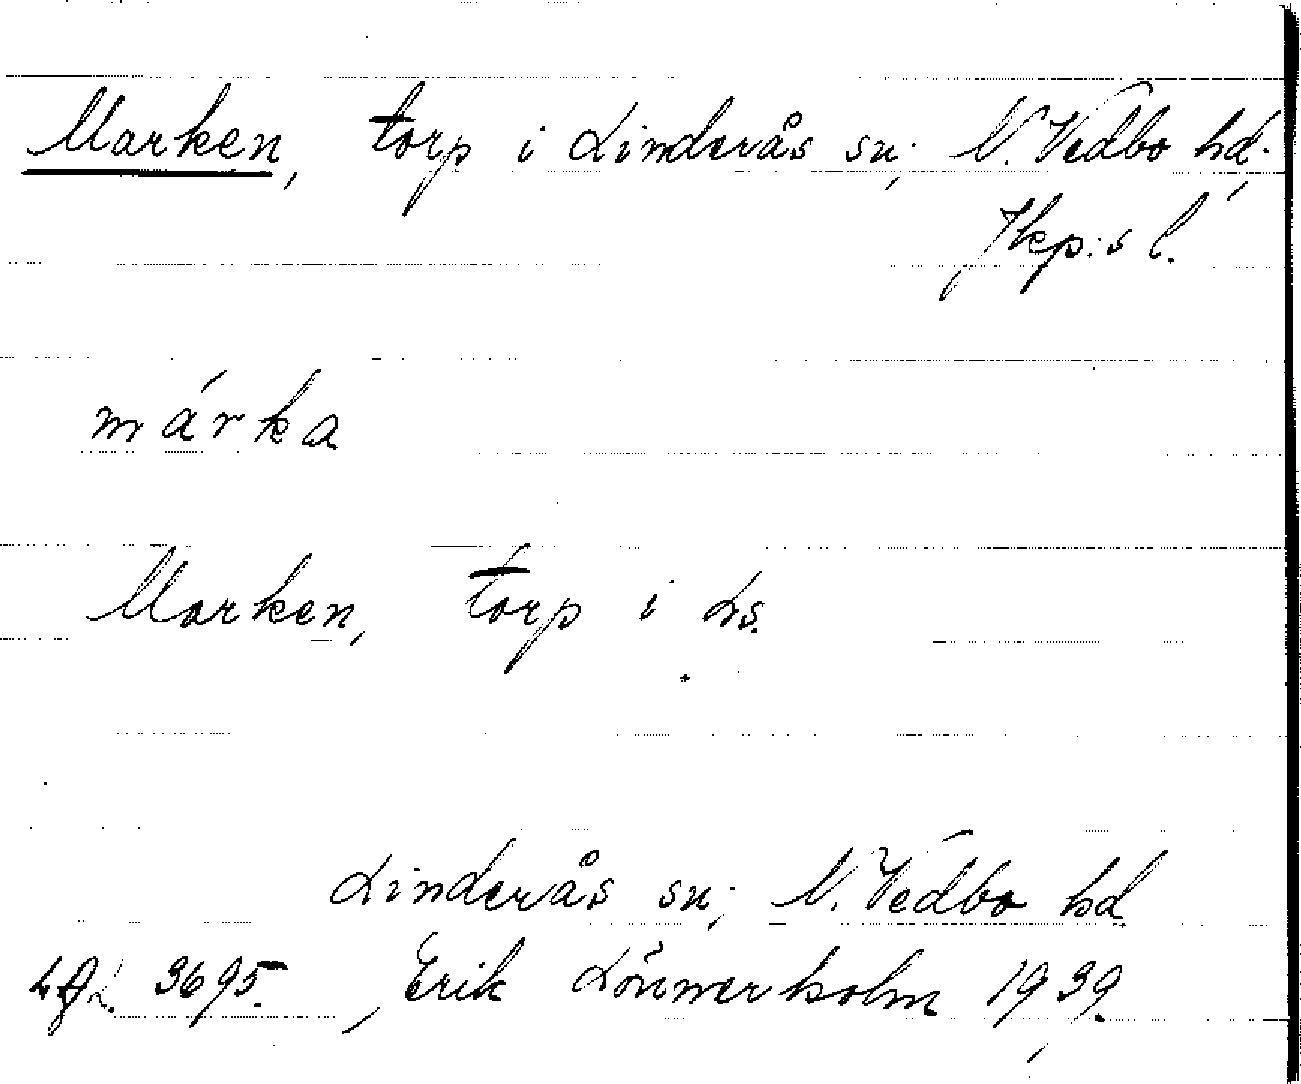 Marken, torp i Linderås sn; N. Vedbo hd.
Jkp:s l.
márka
Marken, torp i Ls.
Linderås sn; N. Vedbo hd
3695. Erik Lönnerholm 1939.